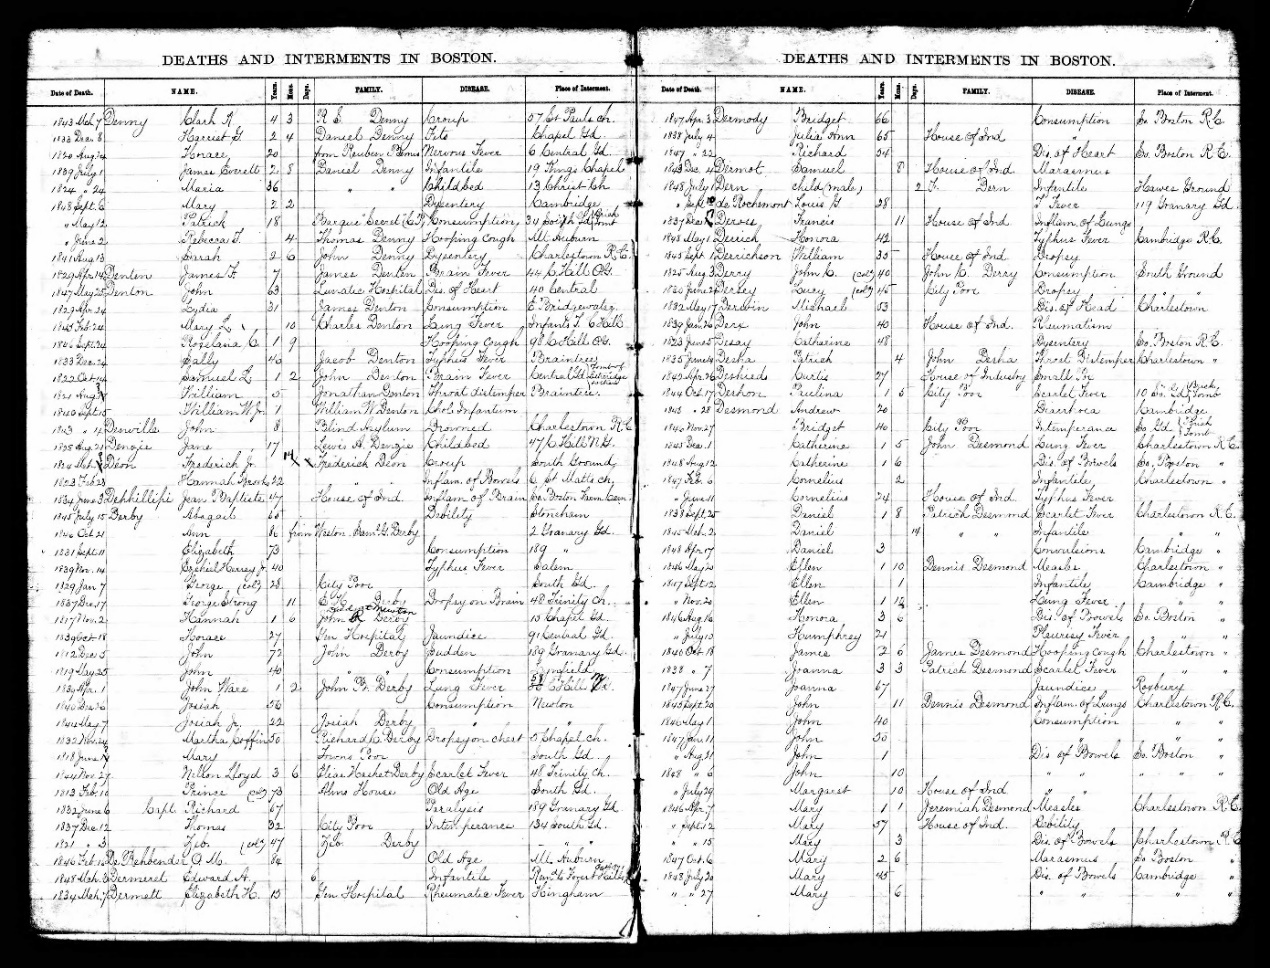 DEATHS AND INTERMENTS IN BOSTON.
Date of Death. NAME. Years. Mos. Days. FAMILY. DISEASE. Place of Interment.
1843 Mch. 7 Denny Clark R 4 3 R. E. Denny Croup 57 St Pauls ch.
1833 Dec. 8 Harriet G 2 4 Daniel Denny Fits Chapel Gd.
1820 Aug. Horace 20 from Reuben Nervous Fever 6 Central Gd.
1839 July 1 James Everett 2 8 Daniel Denny Infantile 19 King's Chapel
1824 " 24 Maria 36 " " Childbed 13 Christ Ch
1848 Sept. 6 Mary 2 2 Dysentery Cambridge
" May 12 Patrick 18 Barque Consumption 34 South Gd.
" June 2 Rebecca T. 4 Thomas Denny Hooping Cough Mt Auburn
1841 Aug 13 Sarah 2 6 John Denny Dysentery Charlestown R.C.
1829 Apr. 14 Denten James F. 7 James Denten Brain Fever 44 C. Hill
1847 May Denton John 63 Lunatic Hospital Dis. of Heart 40 Central
1829 Apr. 24 Lydia 31 James Denton Consumption E. Bridgewater
Feb. 24 Mary L. 10 Charles Denton Lung Fever Infants T. C Hill
Sept. 24 Roselana C. 1 9 Hooping Cough 98 C. Hill
1833 Dec. 24 Sally 40 Jacob Denton Typhus Fever Braintree
1822 Oct. Samuel L. 1 2 John Denton Brain Fever Central Gd.
1821 Aug. William 5 Jonathan Denton Throat distemper Braintree
Sept. 15 William W. Jr. 1 William W. Denton Chol. Infantum
Denville John 8 Blind Asylum Drowned Charlestown R C
Aug. Denzie Jane 17 Lewis A. Denzie Childbed 47 C. Hill N. G.
Mch. Deon Frederick Jr. Frederick Deon Croup South Ground
1803 Feb. 23 Hannah 22 " " Inflam. of Bowels St Matts ch.
1834 June Jean Baptiste 47 House of Ind Inflam of Brain So. Boston
1845 July 15 Derby Abagail Debility Stoneham
1846 Oct 21 Ann from Weston. Derby 2 Granary Gd.
1831 Sept. 11 Elizabeth 73 Consumption 189 "
1839 Nov. 14 Ezekiel Hersey Jr. 40 Typhus Fever Salem
1829 Jan 7 George (col.) 28 City Poor South Gd.
1837 Dec. 17 George Strong 11 E. H. Derby Dropsy on Brain 48 Trinity ch.
1817 Nov. 2 Hannah 1 6 John Derby 10 Chapel Gd.
1839 Oct. 18 Horace 27 Gen Hospital Jaundice 91 Central Gd.
1812 Dec. 5 John 72 John Derby Sudden 189 Granary Gd.
1819 May 25 John 40 " " Consumption Lynnfield
Apr. 1 John Ware 1 2 John B. Derby Lung Fever C. Hill
1840 Dec. Josiah 56 Consumption Newton
1844 May 7 Josiah Jr. 22 Josiah Derby " "
1832 Nov. Martha Coffin 50 Richard C. Derby Dropsy on chest 5 Chapel ch.
1818 June Mary Towns Poor South Gd.
Nov. 27 Nelson Lloyd 3 6 Elias Hasket Derby Scarlet Fever 48 Trinity ch.
1813 Feb. 10 Prince (col.) 73 Alms House Old Age South Gd.
1832 June 6 Capt. Richard 67 Paralysis 189 Granary Gd
1837 Dec. 12 Thomas 32 City Poor Intemperance 134 South Gd.
1821 " 3 Zeb. (col.) 47 Zeb. Derby
1846 Feb. De Rehbender A. M. 84 Old Age Mt. Auburn
1848 Mch. Dermeret Edward A. 6 Infantile
1834 Mch. 7 Dermett Elizabeth H. 15 Gen Hospital Rheumatic Fever Hingham
DEATHS AND INTERMENTS IN BOSTON.
Date of Death. NAME. Years. Mos. Days. FAMILY. DISEASE. Place of Interment.
1847 Apr. 3 Dermody Bridget 66 Consumption So Boston R C.
1838 July 4 Julia Ann 65 House of Ind "
1847 " 22 Richard 34 Dis. of Heart So. Boston R. C.
1843 Dec. 4 Dermot Samuel 8 House of Ind Marasmus
1848 July 1 Dern child (male) 2 T. Dern Infantile Hawes Ground
" Sept. de Rochemont Louis G 28 " Fever 119 Granary Gd.
1837 Dec. Derois Francis 11 House of Ind. Inflam. of Lungs
1848 May 1 Derrick Honora 42 Typhus Fever Cambridge R.C.
1845 Sept. 1 Derrickson William 35 House of Ind. Dropsy
1825 Aug. 3 Derry John C. (col.) 40 John C. Derry Consumption South Ground
1830 June Dersey Lucy (col.) 45 City Poor Dropsy " "
1832 May 17 Derwin Michael 53 Dis. of Head Charlestown
1839 Jan. 26 Derx John 40 House of Ind. Rheumatism
1823 June 5 Desay Catharine 48 Dysentery So. Boston R.C.
1835 June Desha Patrick 4 John Desha Throat Distemper Charlestown "
1842 Apr. 26 Deshieds Curtis 27 House of Industry Small Px
1844 Oct. 17 Deshon Paulina 1 5 City Poor Scarlet Fever 10 So. Gd.
1845 " 28 Desmond Andrew 20 Diarrhoea Cambridge
1846 Nov. 27 Bridget 40 City Poor Intemperance So. Gd.
1845 Dec. 1 Catharine 5 John Desmond Lung Fever Charlestown R.C.
1848 Aug 12 Catharine 1 6 Dis. of Bowels So. Boston "
1847 Feb. 6 Cornelius 2 Infantile Charlestown "
" June 11 Cornelius 24 House of Ind Typhus Fever
1838 Sept. 25 Daniel 1 8 Patrick Desmond Scarlet Fever Charlestown R.C.
1845 Mch. 2 Daniel 14 " " Infantile " "
1848 Apr. 17 Daniel 3 Convulsions Cambridge "
1846 May 2 Ellen 1 10 Dennis Desmond Measles Charlestown "
1847 Sept. 12 Ellen 1 Infantile Cambridge "
" Nov. 20 Ellen 1 Lung Fever " "
1846 Aug. 16 Honora 3 6 Dis. of Bowels So. Boston "
" July 13 Humphrey 21 Pleurisy Fever " "
1840 Oct. 18 James 2 6 James Desmond Hooping cough Charlestown "
1838 " 7 Joanna 3 3 Patrick Desmond Scarlet Fever " "
1847 June 27 Joanna 67 Jaundice Roxbury
1845 Sept. 20 John 11 Dennis Desmond Inflam. of Lungs Charlestown R.C.
1846 May 1 John 40 Consumption " "
1847 Jan. 11 John 50 " "
" Aug. 31 John 1 Dis of Bowels So. Boston "
1848 " 6 John 10 " " " "
" July 29 Margaret 10 House of Ind
1846 Apr. 7 Mary 1 1 Jeremiah Desmond Measles Charlestown R.C.
" Sept. 12 Mary 57 House of Ind. Debility
" " 15 Mary 3 Dis of Bowels Charlestown R.C.
1847 Oct. 6 Mary 2 6 Marasmus So Boston "
1848 July 20 Mary 45 Dis. of Bowels Cambridge "
" " 27 Mary 6 " " " "